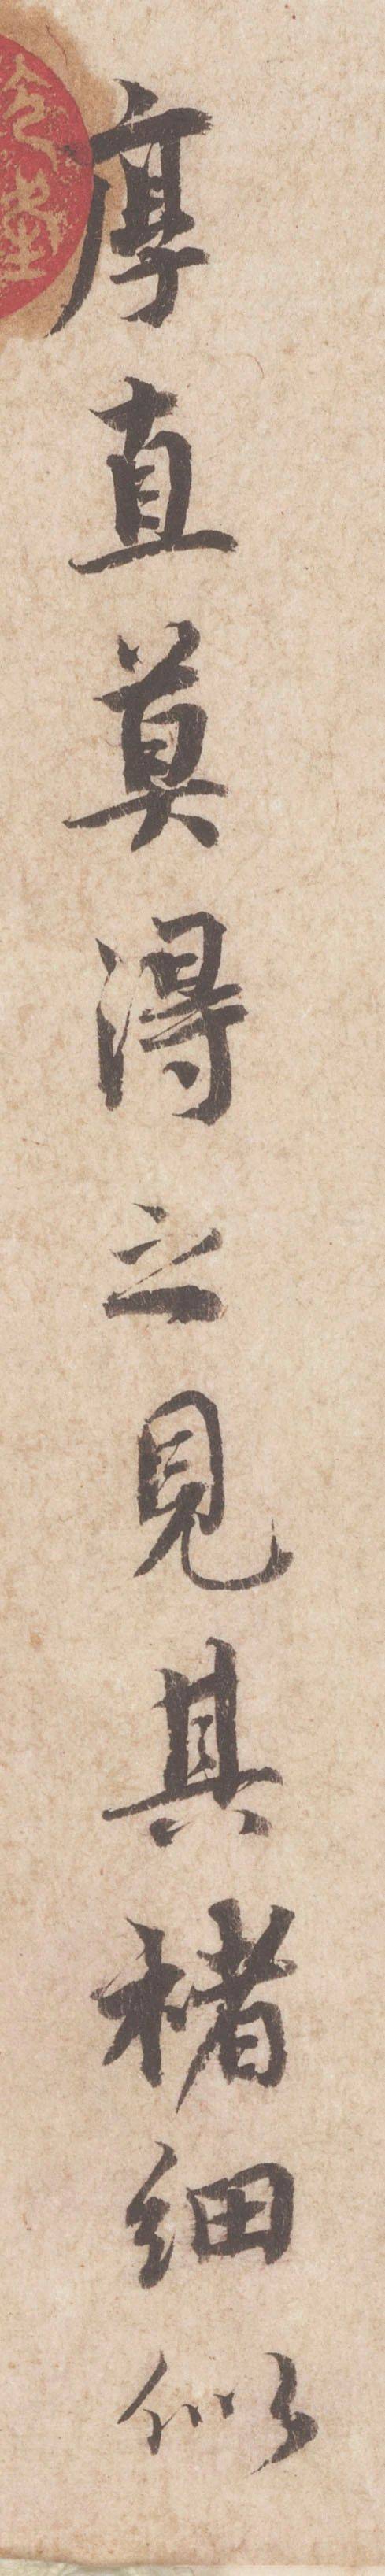 厚直莫得之見其楮細似